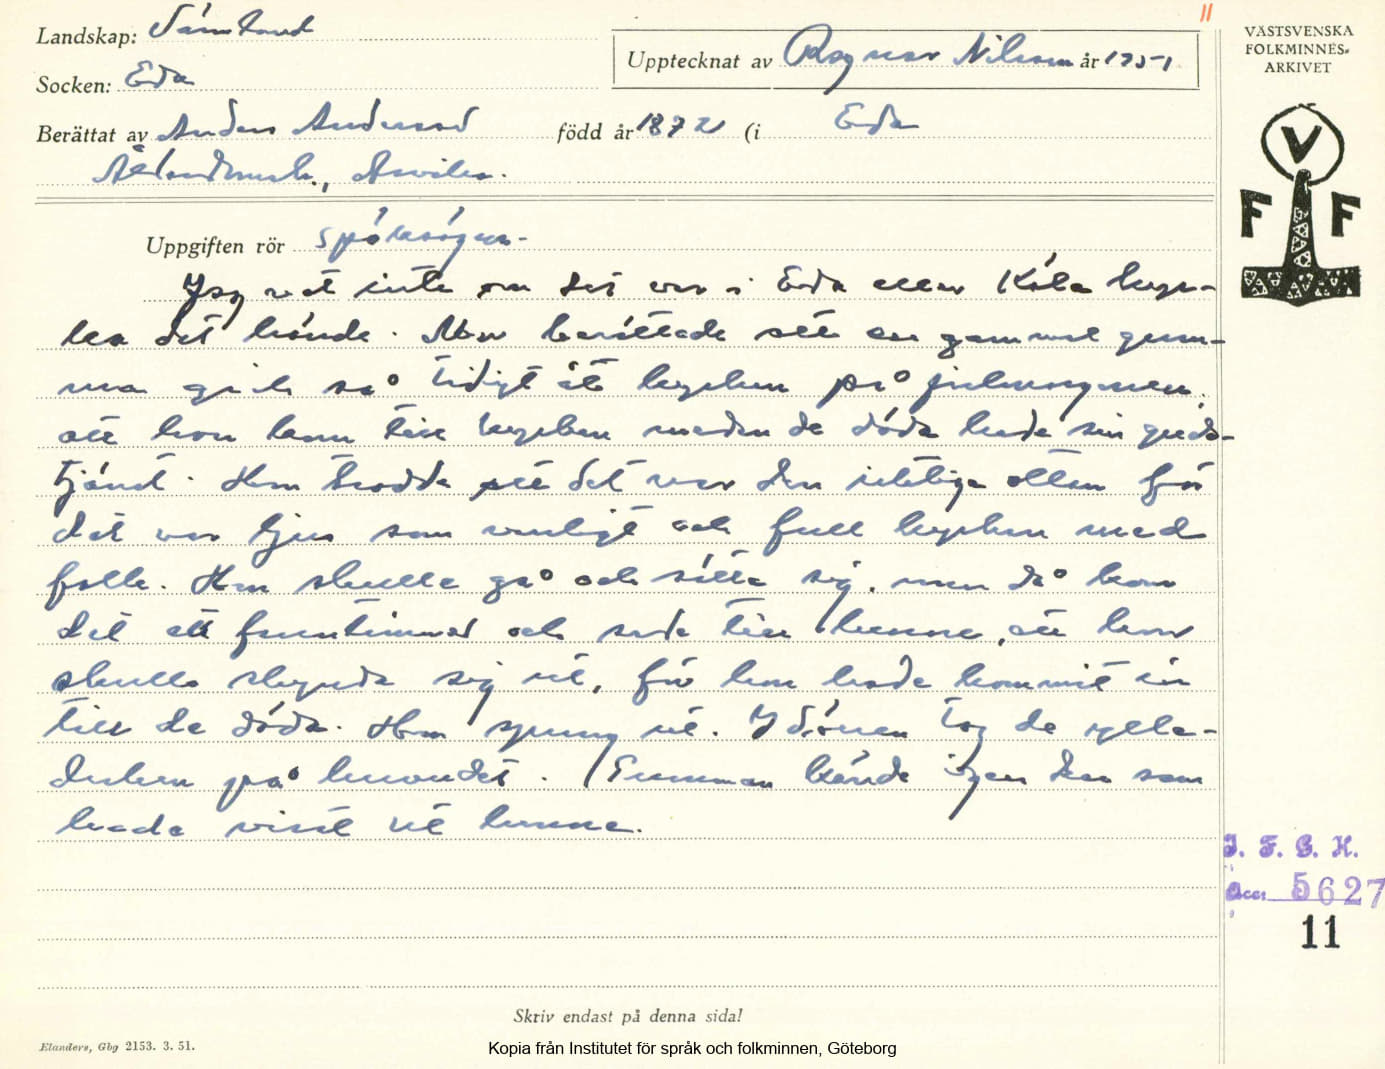 11
Landskap: Värmland
Upptecknat av Ragnar Nilsson år 1951
VÄSTSVENSKA
FOLKMINNES-
ARKIVET
Socken: Eda
Berättat av Anders Andersson född år 1872 (i Eda
Åstandmark., Arvika.
V
F F
Uppgiften rör Spöksägen-
Jag vet inte om det var i Eda eller Köla kyr-
ka det hände. Man berättade att en gammal gum-
ma gick så tidigt åt kyrkan på julmorgonen
att hon kom till kyrkan medan de döda hade sin guds-
tjänst. Hon trodde att det var den riktiga ottan för
det var ljus som vanligt och full kyrkan med
folk. Hon skulle gå och sätta sig, men då kom
det ett fruntimmer och sade till henne, att hon
skulle skynda sig ut, för hon hade kommit in
till de döda. Hon sprang ut. I dörren tog de sylle-
duken på huvudet. Gumman kände igen den som
hade visat ut henne.
I. F. G. H.
Acc: 5627
11
Skriv endast på denna sida!
Elanders, Gbg 2153. 3. 51.
Kopia från Institutet för språk och folkminnen, Göteborg